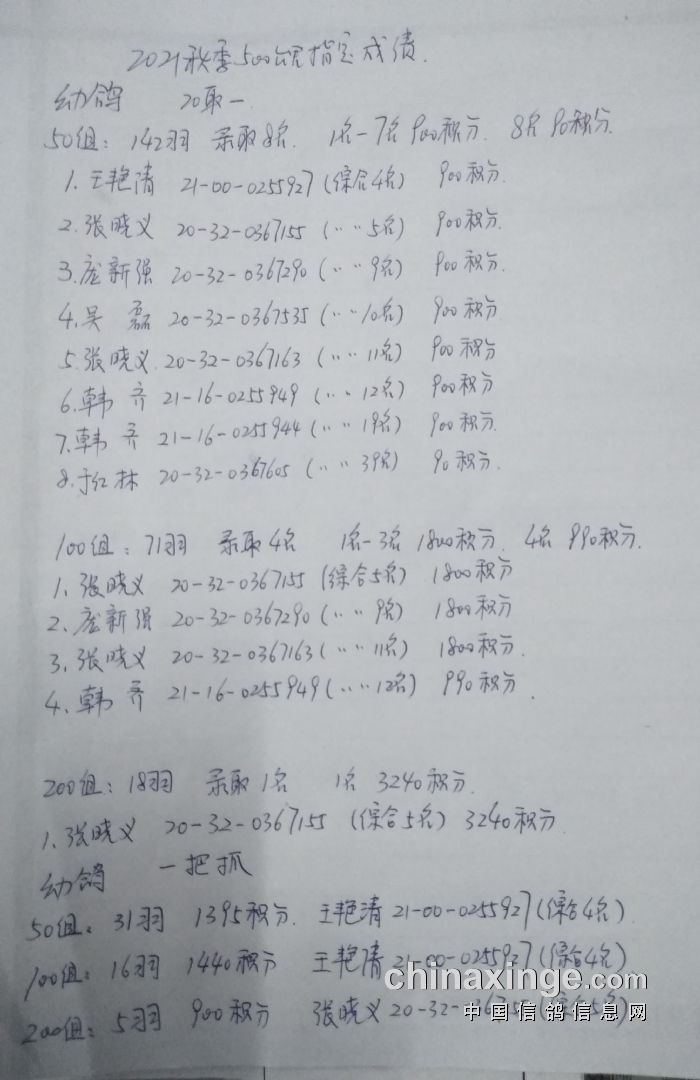 2021秋季500公里指定成绩.
幼鸽 20取一
50组: 142羽 录取8名. 1名-7名 900积分. 8名 90积分.
1.王艳清 21-00-0255927(综合4名) 900积分.
2.张晓义 20-32-0367155 (‥‥5名) 900积分.
3.庞新强 20-32-0367290(‥‥9名) 900积分.
4.吴磊 20-32-0367535(‥‥10名) 900积分
5.张晓义.20-32-0367163 (‥‥11名) 900积分
6.韩齐 21-16-0255949 (‥‥12名) 900积分
7.韩齐 21-16-0255944(‥‥19名) 900积分.
8.于红林 20-32-0367605 (‥‥39名) 90积分.
100组: 71羽 录取4名 1名-3名 1800积分. 4名 990积分.
1.张晓义 20-32-0367155 (综合5名) 1800积分
2.庞新强 20-32-0367290(‥‥9名) 1800积分
3.张晓义 20-32-0367163(‥‥11名) 1800积分
4.韩齐 21-16-0255949(‥‥12名) 990积分.
200组: 18羽 录取1名 1名 3240积分.
1.张晓义 20-32-0367155 (综合5名) 3240积分.
幼鸽 一把抓
50组: 31羽 1395积分. 王艳清 21-00-0255927(综合4名).
100组: 16羽 1440积分 王艳清 21-00-0255927(综合4名)
200组: 5羽 900积分 张晓义 20-32-03671 (综合5名)
chinaxinge.com
中国信鸽信息网